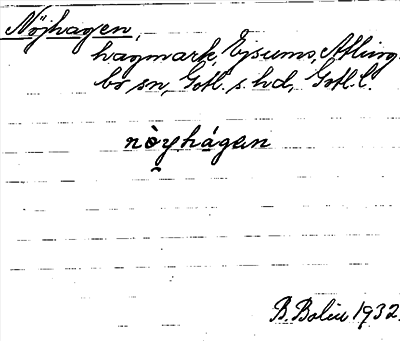 Nöjhagen,
hagmark, Ejsums, Atling-
bo sn, Gotl. s. hd, Gotl. l.
nòyhágan
B. Bolin 1932.